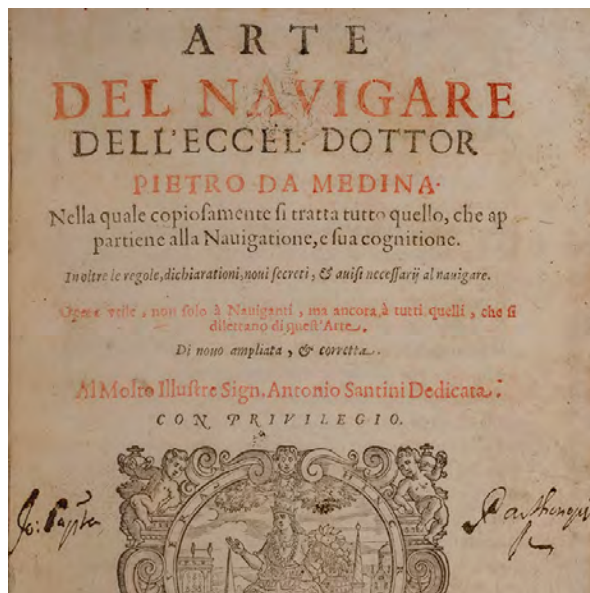 ARTE
DEL NAVIGARE
DELL'ECCEL. DOTTOR
PIETRO DA MEDINA.
Nella quale copioſamente ſi tratta tutto quello, che ap
partiene alla Nauigatione, e ſua cognitione.
In oltre le regole, dichiarationi, noui ſecreti, & auiſi neceſſarij al nauigare.
Opera vtile, non ſolo à Nauiganti, ma ancora, à tutti quelli, che ſi
dilettano di queſt'Arte.
Di nouo ampliata, & corretta.
Al Molto Illuſtre Sign. Antonio Santini Dedicata.
CON PRIVILEGIO.
Jo: